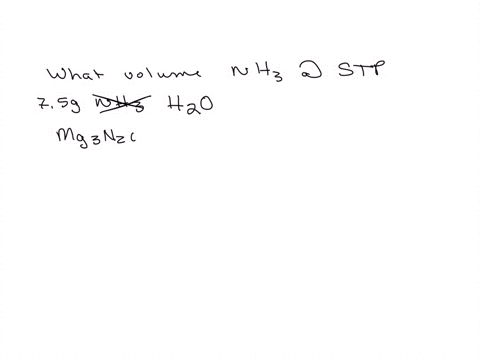 What volume NH3 @ STP
7.5g NH3 H2O
Mg3N2(